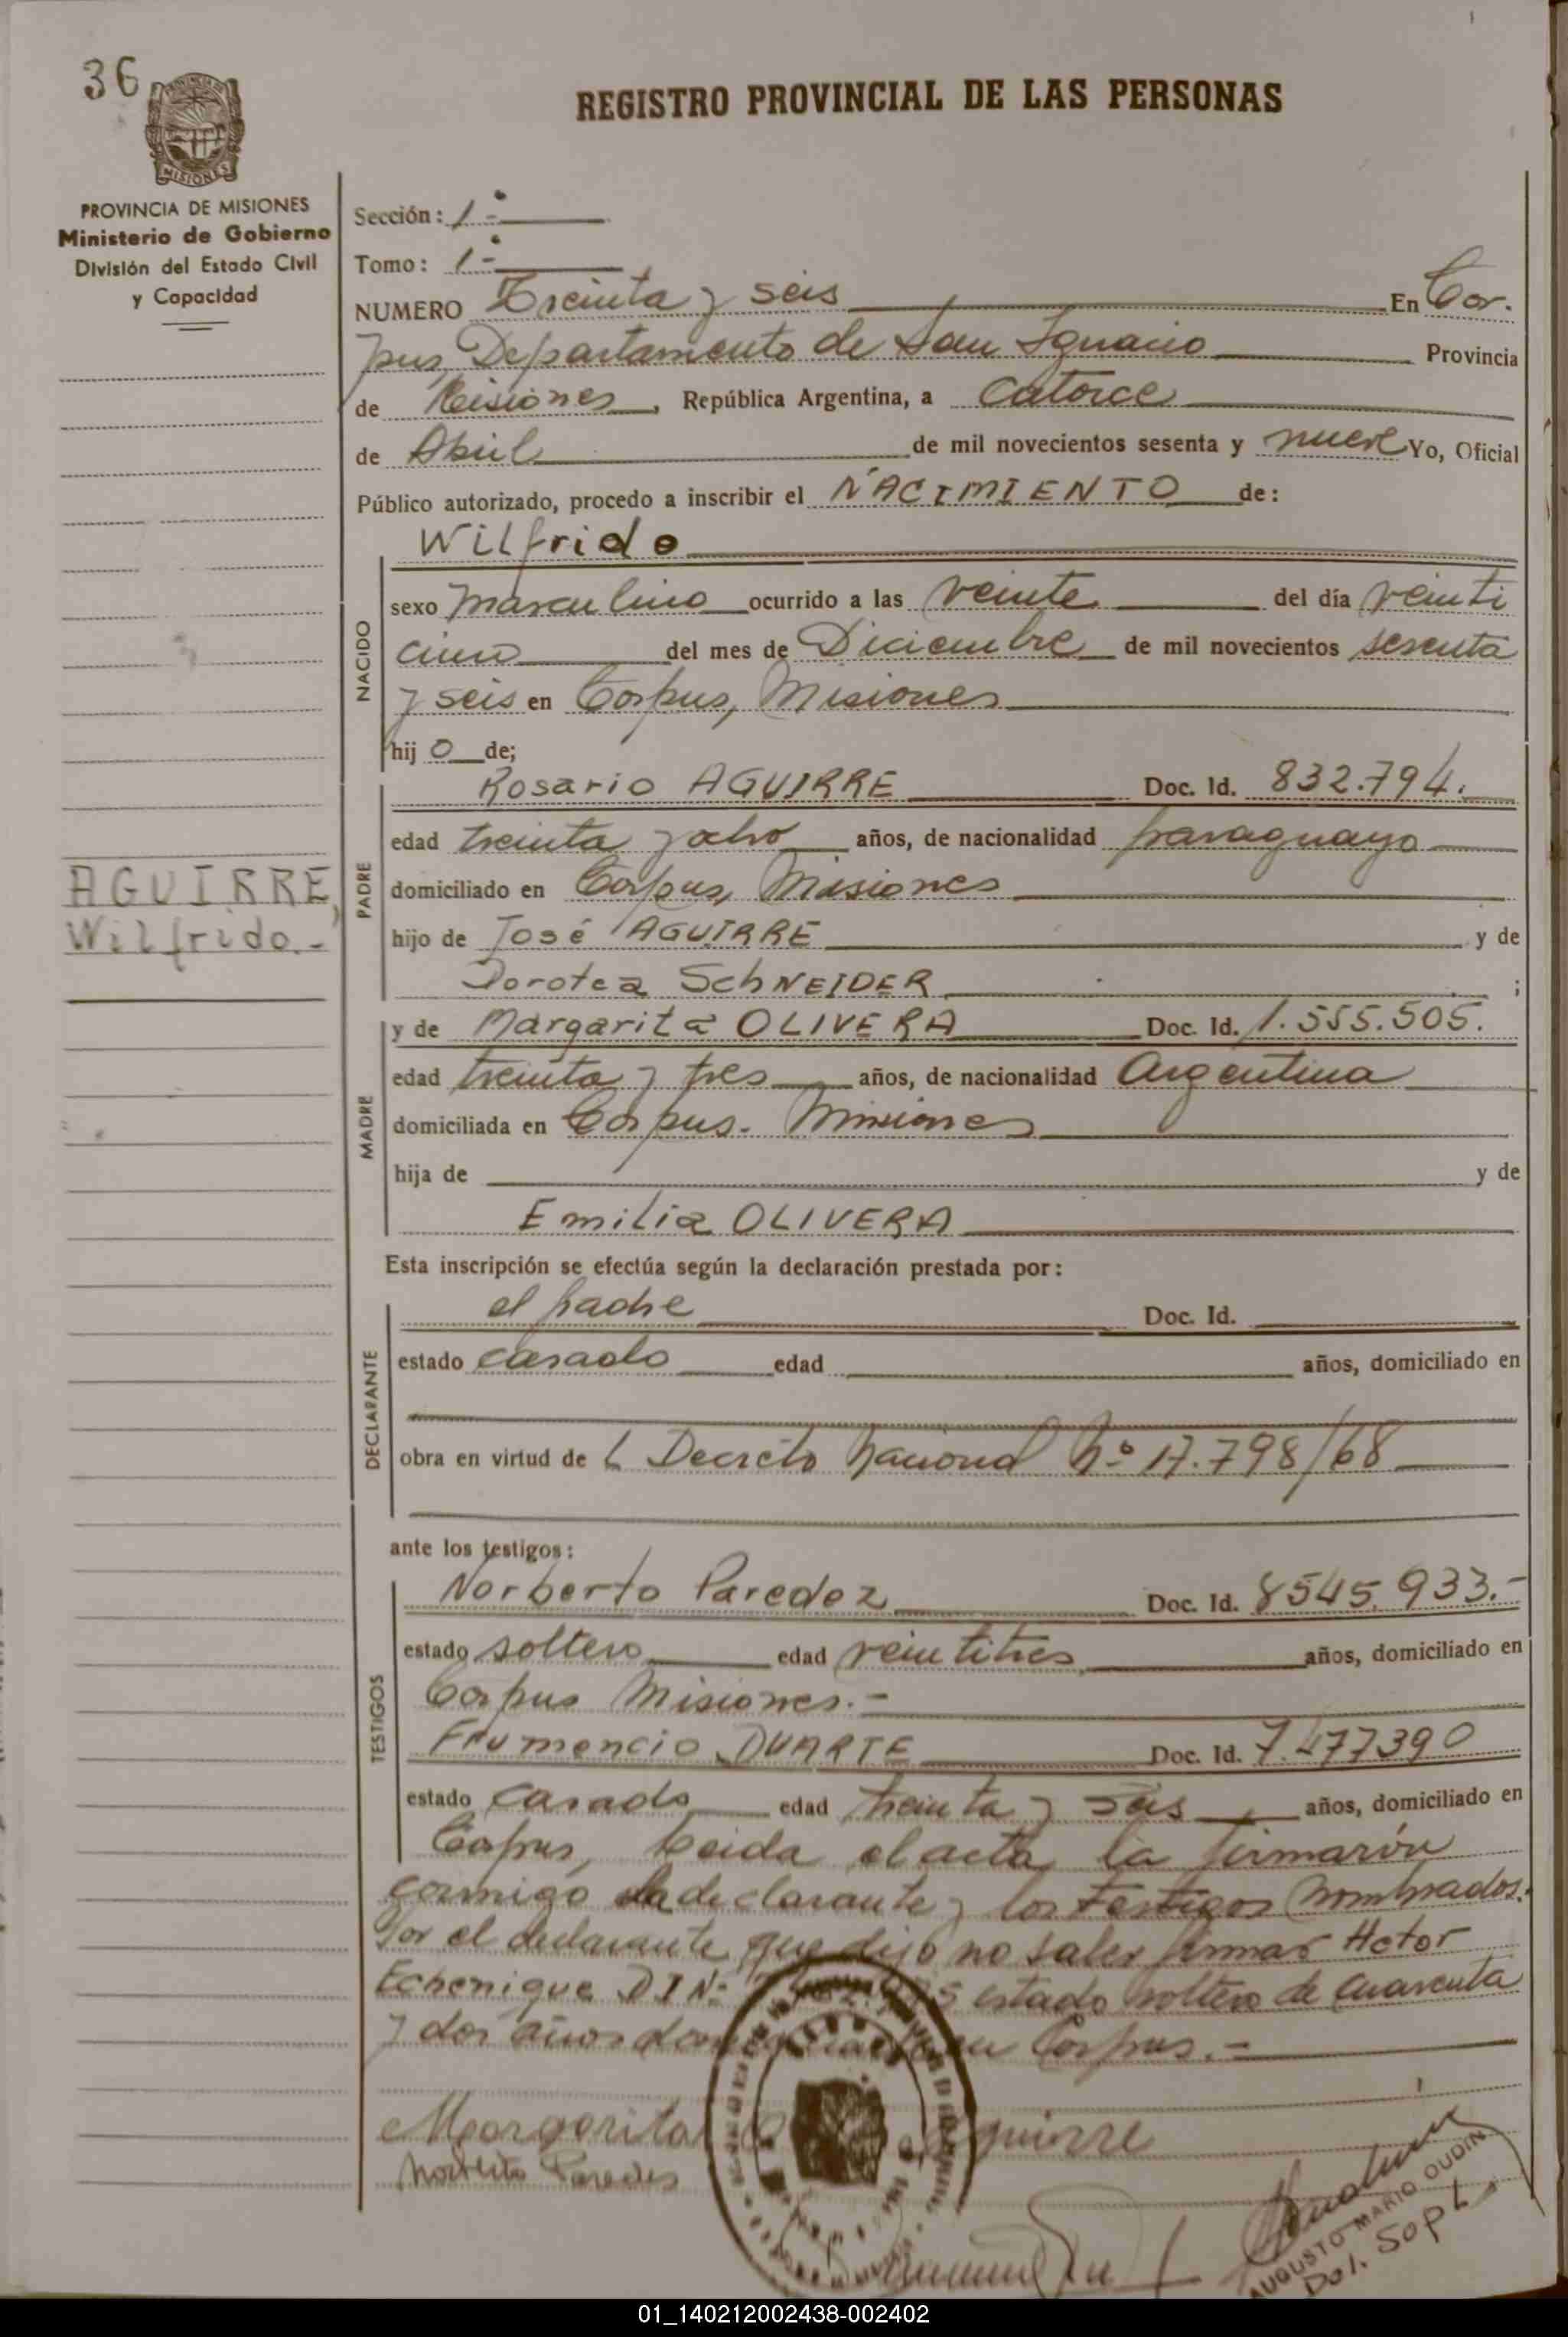 36
REGISTRO PROVINCIAL DE LAS PERSONAS
MISIONES
PROVINCIA DE MISIONES
Ministerio de Gobierno
División del Estado Civil
y Capacidad
Sección: 1-
Tomo: 1-
NUMERO Treinta y seis En Cor.
pus, Departamento de San Ignacio Provincia
de Misiones, República Argentina, a Catorce
de Abril de mil novecientos sesenta y nueve Yo, Oficial
Público autorizado, procedo a inscribir el NACIMIENTO de:
Wilfrido
NACIDO
sexo masculino ocurrido a las veinte del día veinti
cinco del mes de Diciembre de mil novecientos sesenta
y seis en Corpus, Misiones
hij o de;
PADRE
Rosario AGUIRRE Doc. Id. 832.794.
edad treinta y ocho años, de nacionalidad paraguaya
domiciliado en Corpus, Misiones
AGUIRRE,
Wilfrido.-
hijo de José AGUIRRE y de
Dorotea SchNEIDER ;
MADRE
y de Margarita OLIVERA Doc. Id. 1.555.505.
edad treinta y tres años, de nacionalidad Argentina
domiciliada en Corpus. Misiones
hija de y de
Emilia OLIVERA
Esta inscripción se efectúa según la declaración prestada por:
DECLARANTE
el padre Doc. Id.
estado casado edad años, domiciliado en
obra en virtud de L Decreto Nacional Nº 17.798/68
ante los testigos:
TESTIGOS
Norberto Paredez Doc. Id. 8545.933.-
estado soltero edad veintitres años, domiciliado en
Corpus Misiones.-
Frumencio DUARTE Doc. Id. 7.477390
estado Casado edad treinta y seis años, domiciliado en
Corpus, Leida el acta, la firmarón
conmigo la declarante y los testigos nombrados.
Por el declarante que dijo no saber firmar Hctor
Echenique DIN: estado soltero de cuarenta
y dos años en Corpus.-
Margarita Aguirre
Norberto Paredes
AUGUSTO MARIO OUDIN
01_140212002438-002402